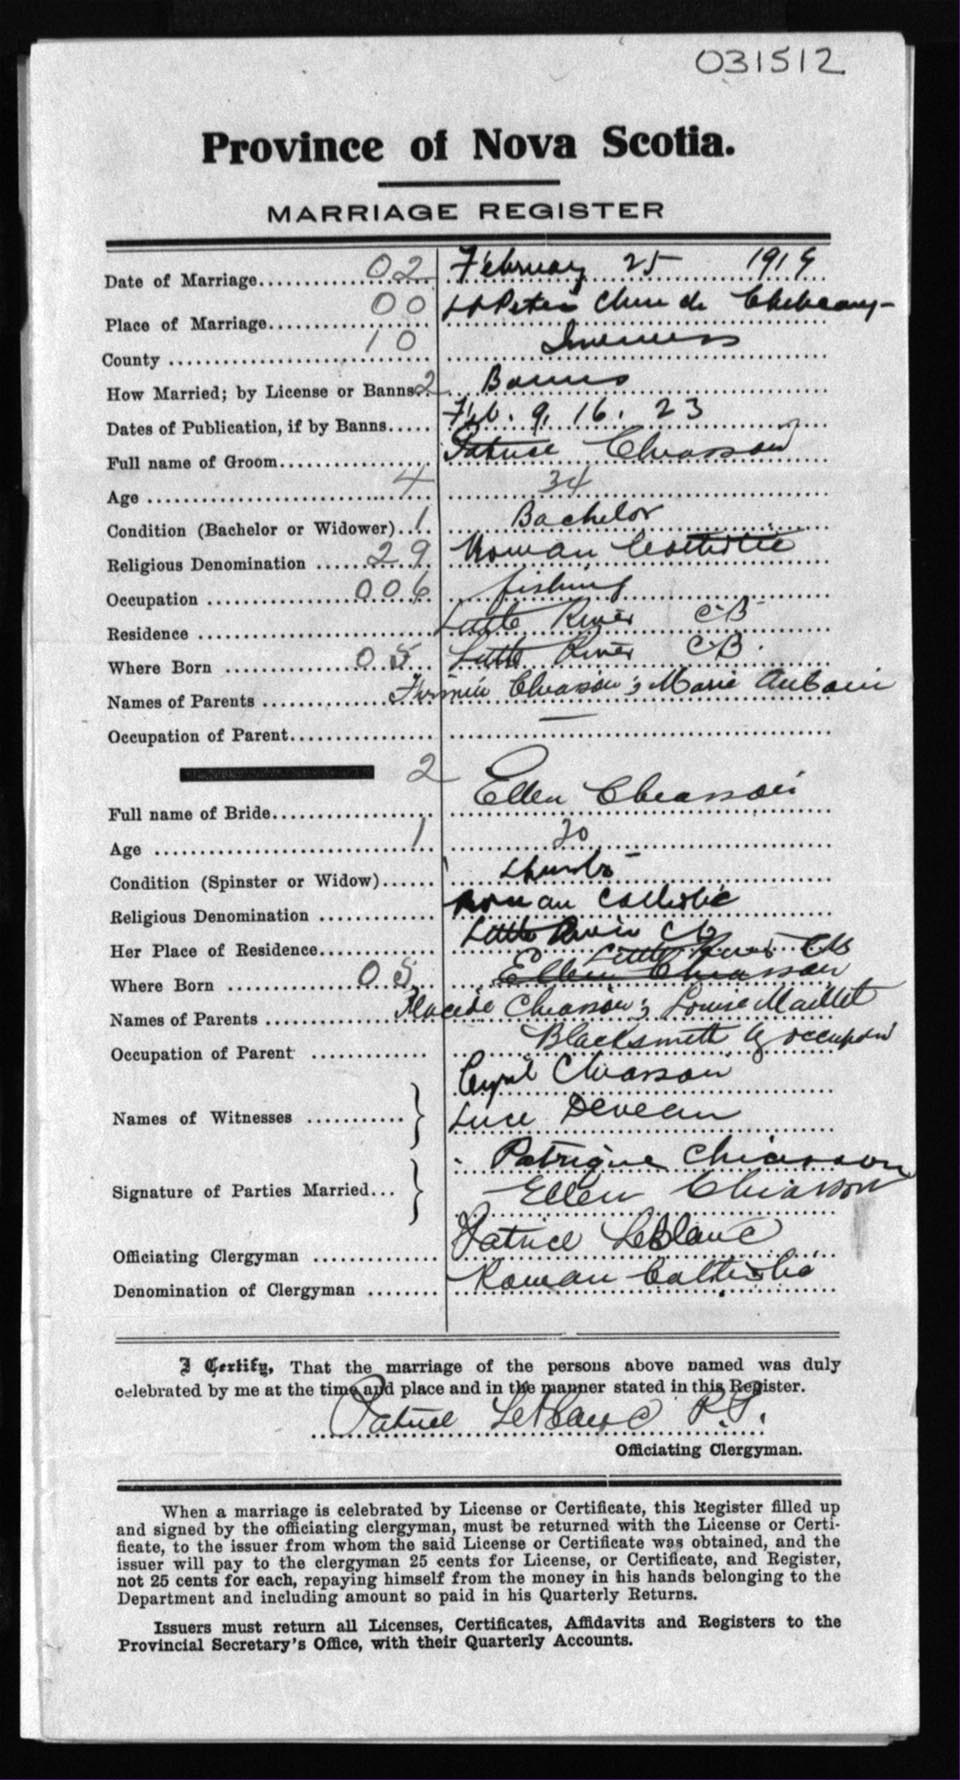 031512
Province of Nova Scotia.
MARRIAGE REGISTER
Date of Marriage 02 February 25 1919
Place of Marriage 00 St Peter
County 10 Inverness
How Married; by License or Banns 2 Banns
Dates of Publication, if by Banns Feb. 9, 16. 23
Full name of Groom Patrice Chiasson
Age 4 34
Condition (Bachelor or Widower) 1 Bachelor
Religious Denomination 29 Roman Catholic
Occupation 006 fishing
Residence Little River C-B
Where Born 05 Little River C-B.
Names of Parents Chiasson; Marie
Occupation of Parent —
2
Full name of Bride Ellen Chiasson
Age 1
Condition (Spinster or Widow)
Religious Denomination Roman Catholic
Her Place of Residence Little River C B
Little River C B
Where Born 05 Ellen Chiasson
Names of Parents Placide Chiasson; Louise Maillet
Occupation of Parent Blacksmith by occupation
Cyril Chiasson
Names of Witnesses
Luce Deveau
Patrique Chiasson
Signature of Parties Married... Ellen Chiasson
Officiating Clergyman Patrice LeBlanc
Denomination of Clergyman Roman Catholic
I Certify, That the marriage of the persons above named was duly
celebrated by me at the time and place and in the manner stated in this Register.
Patrice LeBlanc P.P.
Officiating Clergyman.
When a marriage is celebrated by License or Certificate, this Register filled up
and signed by the officiating clergyman, must be returned with the License or Certi-
ficate, to the issuer from whom the said License or Certificate was obtained, and the
issuer will pay to the clergyman 25 cents for License, or Certificate, and Register,
not 25 cents for each, repaying himself from the money in his hands belonging to the
Department and including amount so paid in his Quarterly Returns.
Issuers must return all Licenses, Certificates, Affidavits and Registers to the
Provincial Secretary's Office, with their Quarterly Accounts.